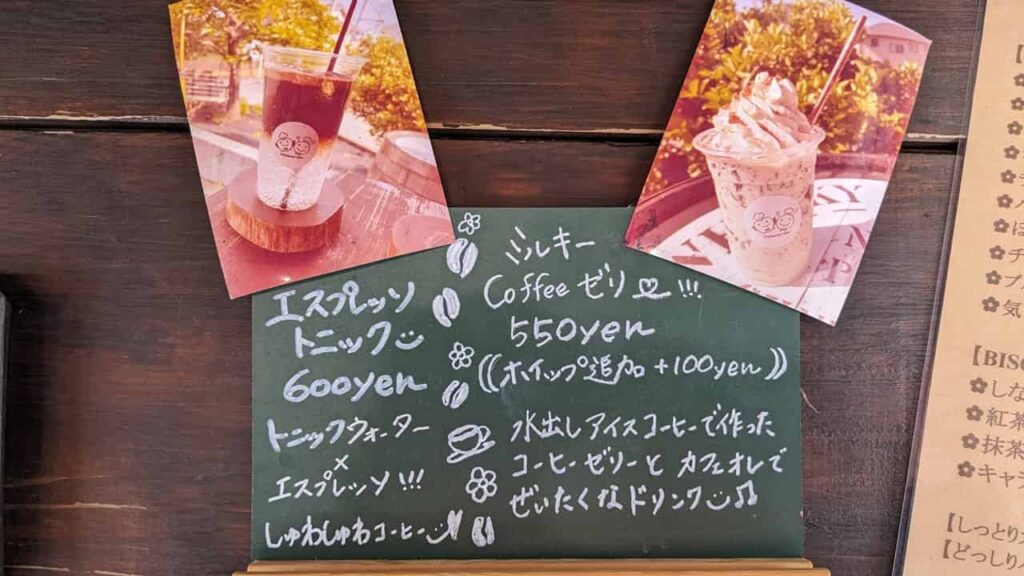 エスプレッソ
トニック
600yen
トニックウォーター
×
エスプレッソ!!!
しゅわしゅわコーヒー
ミルキー
Coffeeゼリー!!!
550yen
((ホイップ追加 +100yen))
水出しアイスコーヒーで作った
コーヒーゼリーと カフェオレで
ぜいたくなドリンク♫
【BISC
しな
紅茶
抹茶
キャラ
【しっとり
【どっしり